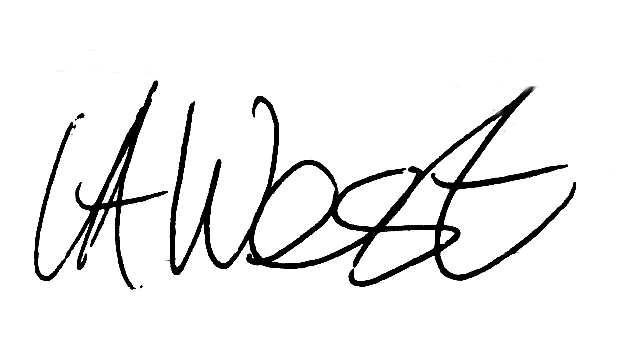 A West